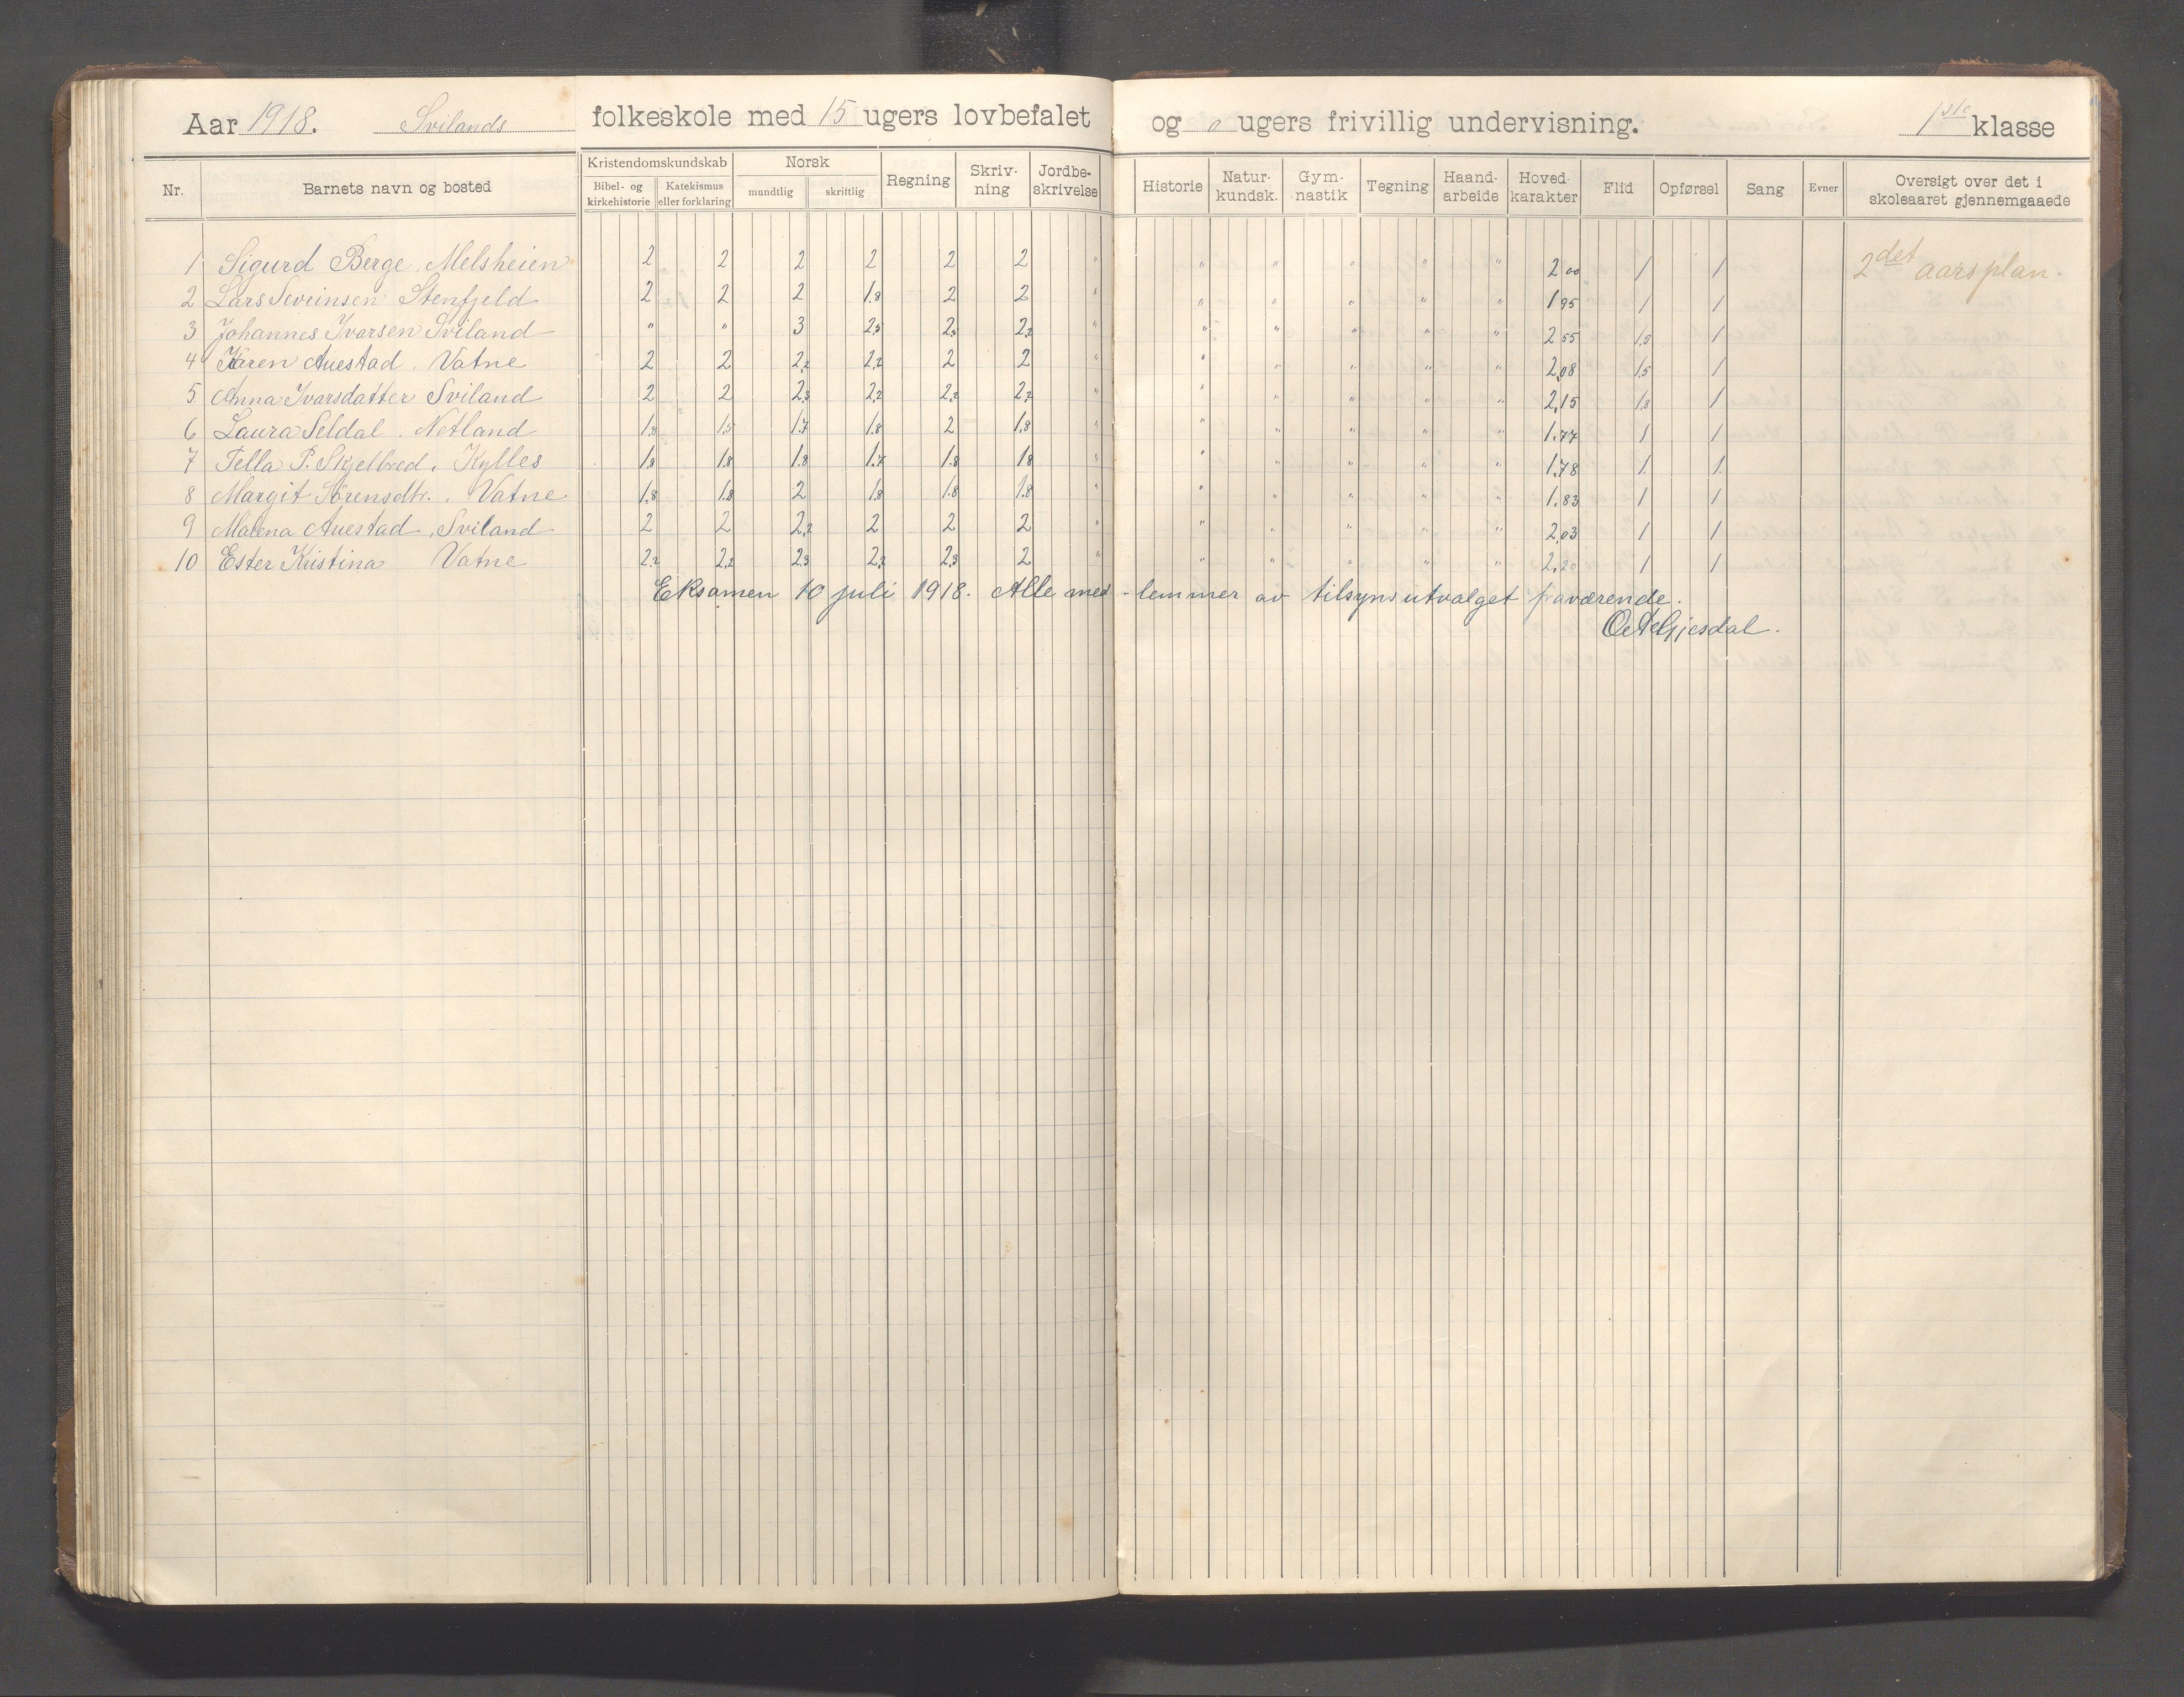 Aar 1918. Svilands folkeskole med 15 ugers lovbefalet og 0 ugers frivillig undervisning. 1ste klasse
Nr. Barnets navn og bosted Kristendomskundskab Bibel- og kirkehistorie Katekismus eller forklaring Norsk mundtlig skriftlig Regning Skriv-ning Jordbe-skrivelse Historie Natur-kundsk. Gym-nastik Tegning Haand-arbeide Hoved-karakter Flid Opførsel Sang Evner Oversigt over det i skoleaaret gjennemgaaede
1 Sigurd Berge. Melsheien 2 2 2 2 2 2 " " " " " " 2 00 1 1 2det aarsplan.
2 Lars Sevrinsen Stenfjeld 2 2 2 1.8 2 2 " " " " " " 1 95 1 1
3 Johannes Ivarsen Sviland " " 3 2,5 2,5 2,2 " " " " " " 2 55 1,5 1
4 Karen Auestad. Vatne 2 2 2,2 2,2 2 2 " " " " " " 2,08 1,5 1
5 Anna Ivarsdatter Sviland 2 2 2,3 2,2 2,2 2,2 " " " " " " 2,15 1,8 1
6 Laura Seldal. Netland 1,8 1,5 1.7 1.8 2 1.8 " " " " " " 1.77 1 1
7 Tella P. Skjelbred, Kylles 1,8 1.8 1.8 1.7 1.8 1.8 " " " " " " 1.78 1 1
8 Margit Sörensdtr.. Vatne 1.8 1.8 2 1.8 1.8 1.8 " " " " " " 1.83 1 1
9 Malena Auestad, Sviland 2 2 2,2 2 2 2 " " " " " " 2,03 1 1
10 Ester Kristina Vatne 2,2 2,2 2,3 2,2 2,3 2 " " " " " " 2,20 1 1
Eksamen 10 juli 1918. Alle med-lemmer av tilsynsutvalget fraværende.
Gjesdal.